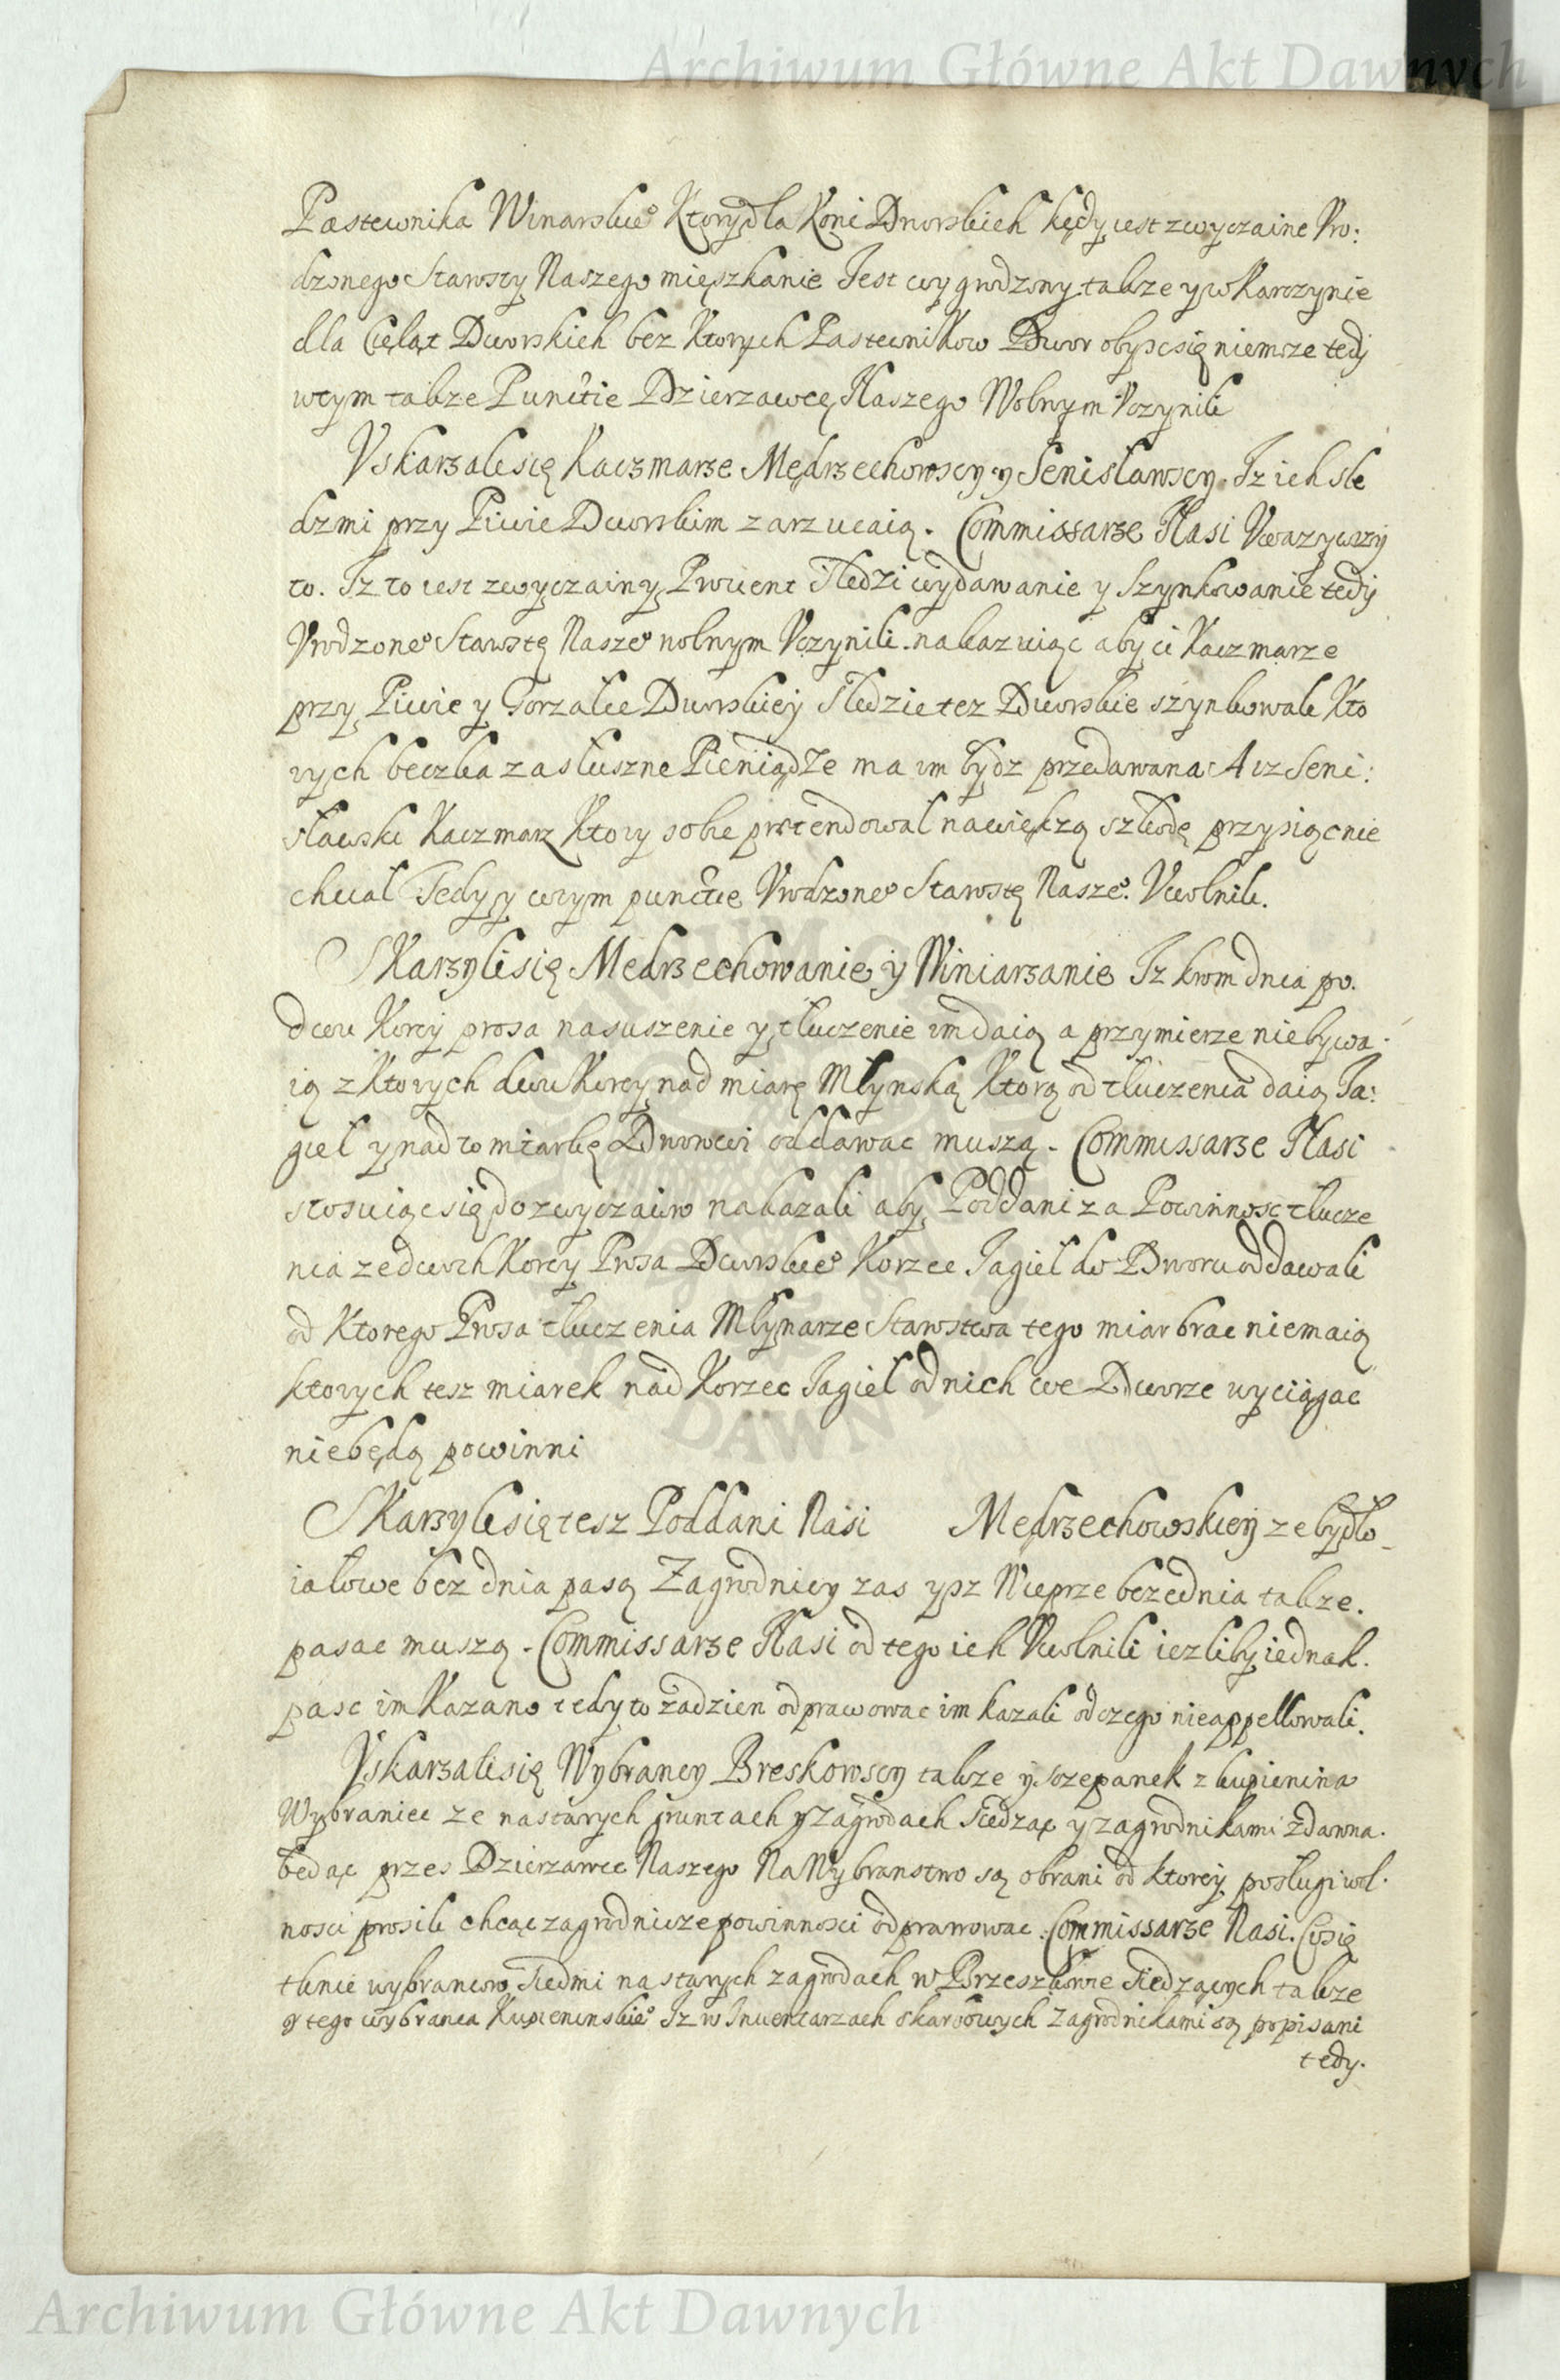 Archiwum Główne Akt Dawnych
Pastewnika Winarskie° Ktory dla Koni Dworskich kędy iest zwyczaine Vro:
dzonego Starosty Naszego mięszkanie Jest wygrodzony takze y w Karczynie
dla Cieląt Dworskich bez Ktorych Pastewnikow Dwor obyscsię niemoze tedy
wtym takze Punctie Dzierzawcę Naszego Wolnym Vczynili
Vskarzali się Kaczmarze Mędrzechowscy y Senisławscy. Jz ich sle
dzmi przy Piwie Dworskim zarzucaią. Commissarze Nasi Vwazywszy
to. Jz to iest zwyczainy Prowent Sledzi wydawanie y Szynkowanie tedy
Vrodzone° Starostę Nasze° wolnym Vczynili. nakazuiąc aby ci Kaczmarze
przy Piwie y Gorzałce Dworskiey Sledzie tez Dworskie szynkowali Kto
rych beczka za słuszne Pieniądze ma im bydz przedawana: A iz Seni:
sławski Kaczmarz Ktory sobie praetendował nawiękzą szkodę przysiącnie
chciał Tedy y wtym punctie Vrodzone° Starostę Nasze°. Vwolnili.
Skarzyli się Medrzechowanie y Winiarzanie Jz krom dnia po.
dwu Korcy prosa nasuszenie y tłuczenie im daią a przymierze niebywa.
ią z Ktorych dwu Korcy nad miarę Młynską Ktorą od tłuczenia daią Ja:
gieł y nad to miarkę Dworowi oddawac muszą. Commissarze Nasi
stosuiąc się do zwyczaiow nakazali aby Poddani za Powinnosc tłucze
nia ze dwuch Korcy Prosa Dworskie° Korzec Jagieł do Dworu oddawali
od Ktorego Prosa tłuczenia Młynarze Starostwa tego miar brac niemaią
ktorych tesz miarek nad Korzec Jagieł od nich we Dworze wyciągac
niebędą powinni
Skarzyli się tesz Poddani Nasi Medrzechowskiey ze bydło
iałowe bez dnia pasą Zagrodnicy zas ysz Wieprze bezednia takze.
pasac muszą. Commissarze Nasi od tego ich Vwolnili iezliby iednak.
pasc im Kazano tedy to zadzien odprawowac im kazali odczego nieappellowali.
Vskarzali się Wybrancy Breskowscy takze y Sczepanek z kupienina
Wybraniec ze nastarych gruntach y zagrodach Siedząc y zagrodnikami zdawna.
będąc przes Dzierzawce Naszego Na Wybranstwo są obrani od ktorey posługi wol.
nosci prosili chcąc zagrodnicze powinnosci odprawowac. Commissarze Nasi.
tknie wybrancow Siedmi na starych zagrodach w Brzeszkowie Siedzących takze
y tego wybranca Kupieninskie° Jz w Inventarzach skarbowych Zagrodnikami są popisani
tedy.
Archiwum Główne Akt Dawnych